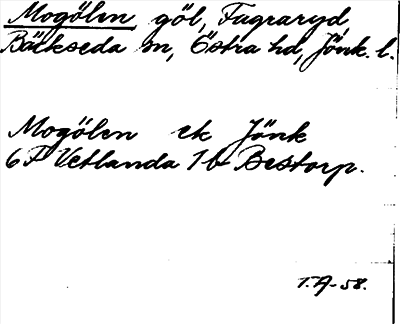 Mogölen, göl, Fagraryd,
Bäckseda sn, Östra hd, Jönk. l.
Mogölen ek Jönk
6F Vetlanda 1b Bestorp.
T.A-58.